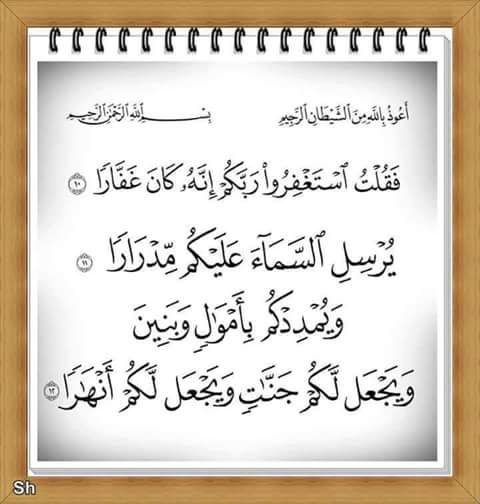 أعوذ بالله من الشيطان الرجيم بسم الله الرحمن الرحيم
فَقُلْتُ ٱسْتَغْفِرُوا۟ رَبَّكُمْ إِنَّهُۥ كَانَ غَفَّارًا ١٠
يُرْسِلِ ٱلسَّمَآءَ عَلَيْكُم مِّدْرَارًا ١١
وَيُمْدِدْكُم بِأَمْوَٰلٍ وَبَنِينَ
وَيَجْعَل لَّكُمْ جَنَّٰتٍ وَيَجْعَل لَّكُمْ أَنْهَٰرًا ١٢
Sh